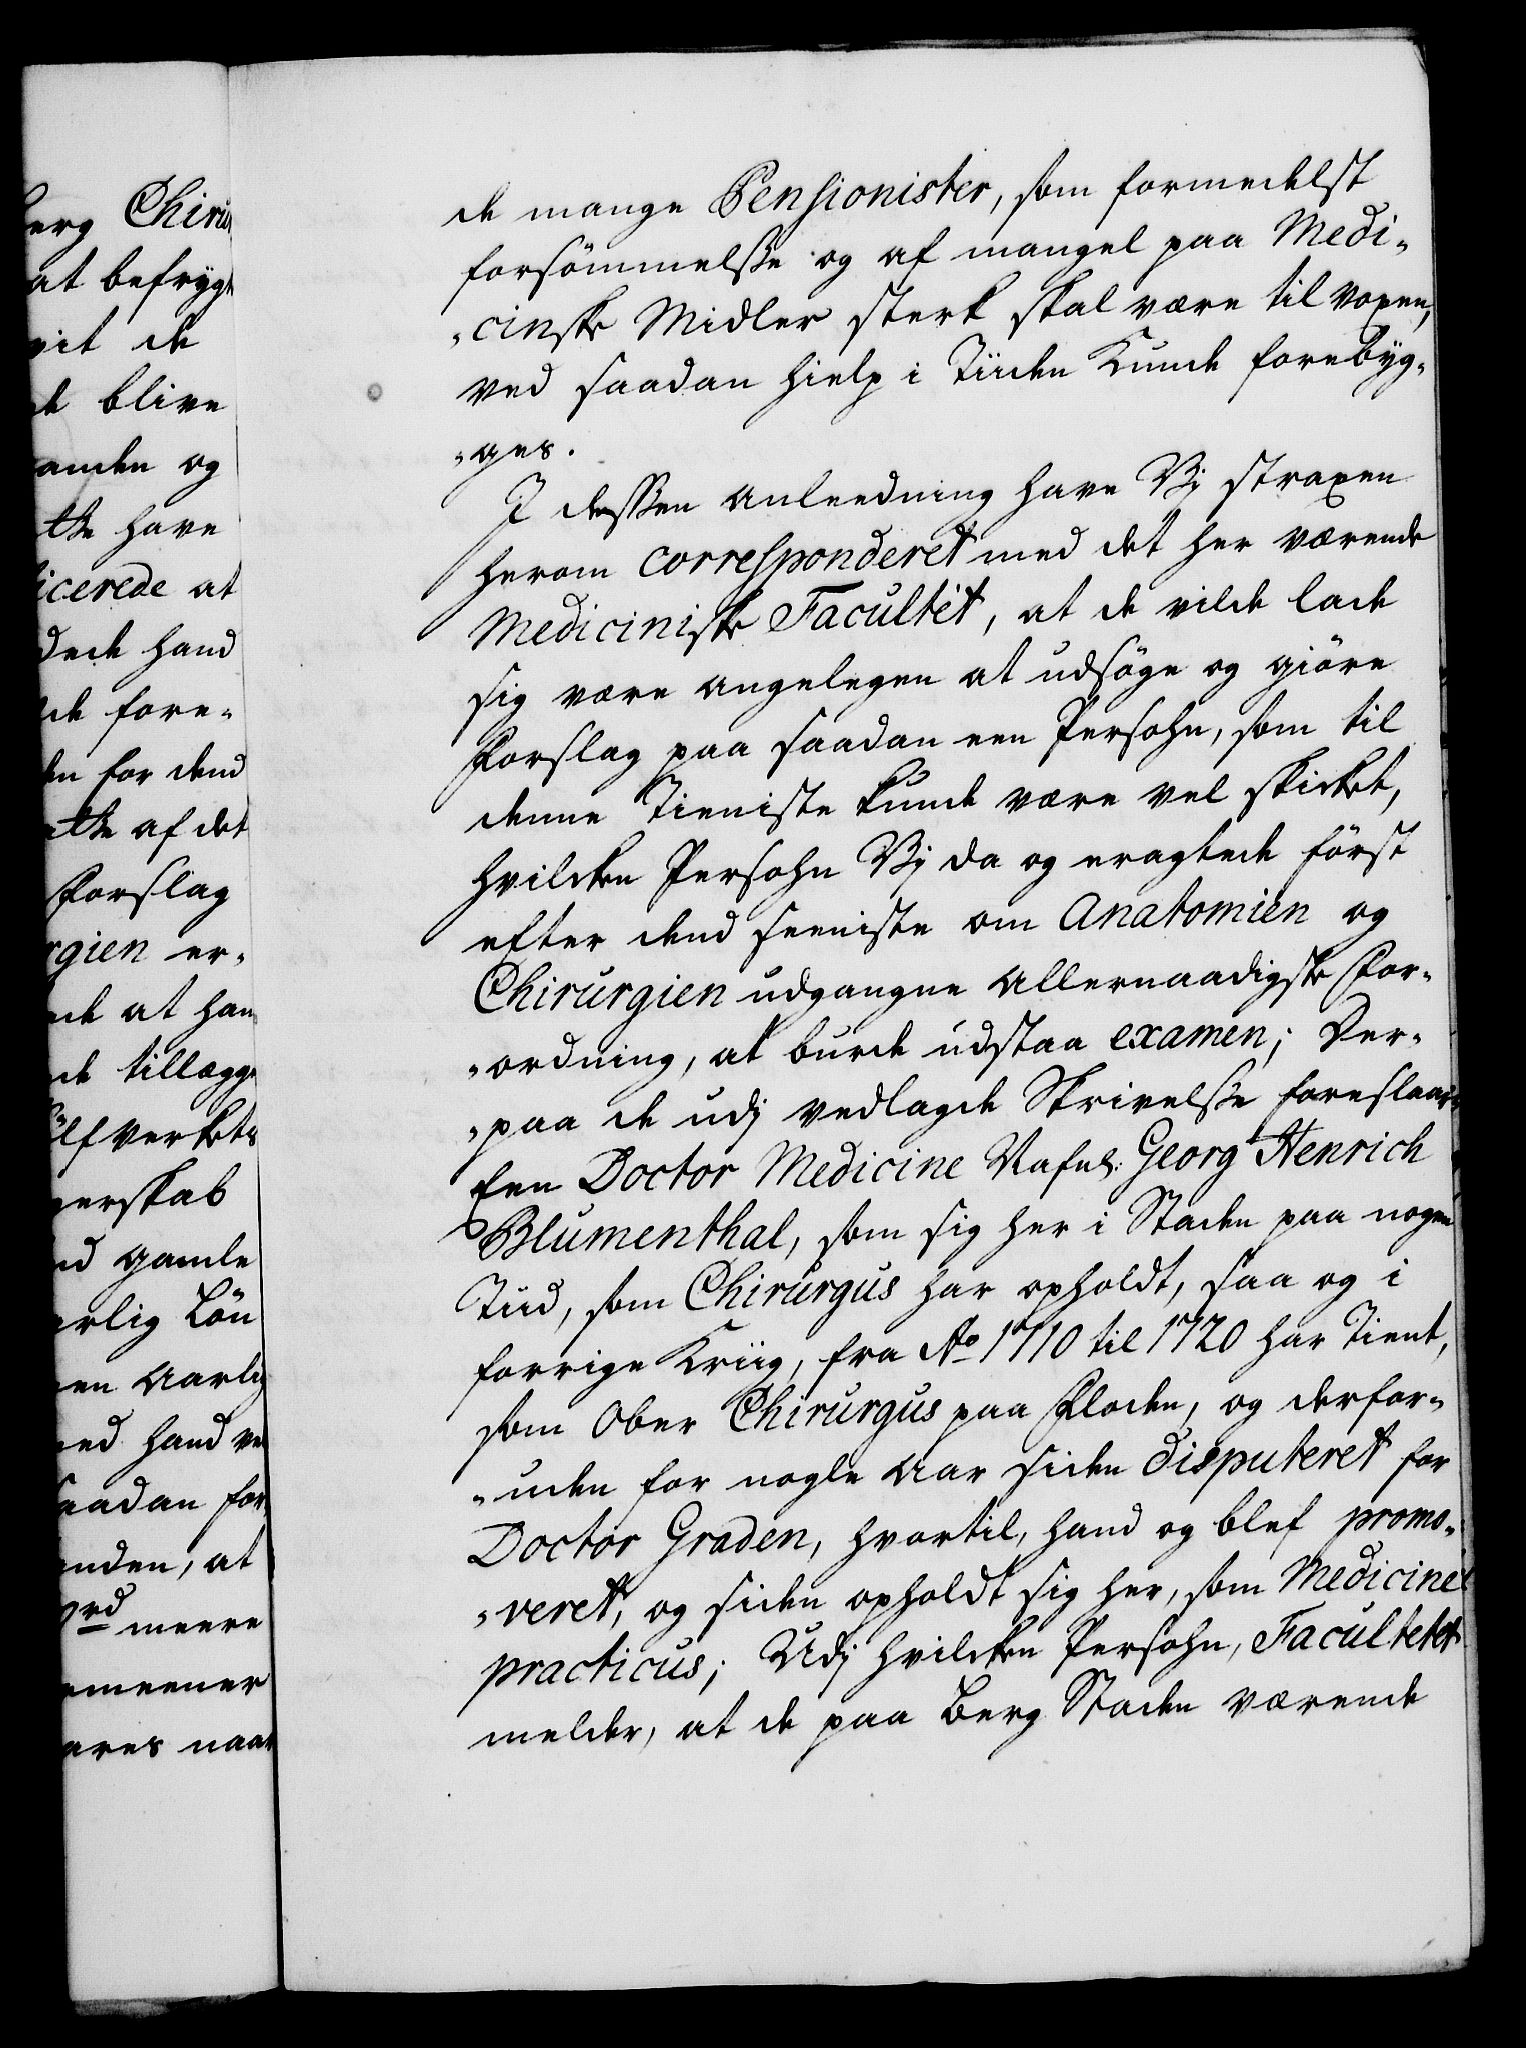 erg Chiru
at befrygt
vit de
de blive
anden og
tte have
icerede at
dede hand
de fore-
en for dend
ette af det
Forslag
rgien er-
de at han
de tillægge
ölfverkets
nerskab
nd gamle
arlig Lön
en Aarlig
ed hand ve
saadan for
anden, at
ord meere
emeener
eres naar
de mange Pensionister, som formedelst
forsömmelsse og af mangel paa Medi-
-cinske Midler sterk skal være til voxen,
ved saadan hielp i Tiiden Kunde forebÿg-
-ges.
I dessen Anleedning have Vj straxen
herom correspondéret med det her værende
Medicinske Facultét, at de vilde lade
sig være angelegen at udsöge og giöre
Forslag paa saadan een Persohn, som til
denne Tieniste kunde være vel skicket,
hvilcken Persohn Vj da og eragtede först
efter dend seeniste om Anatomien og
Chirurgien udgangne Allernaadigste For-
-ordning, at burde udstaa examen; Der-
-paa de udj vedlagde Skrivelsse foreslaar
Een Doctor Medicine Nafnl: Georg Henrich
Blumenthal, som sig her i Staden paa nogen
Tiid, som Chirurgus har opholdt, saa og i
forrige Kriig, fra Ao 1710 til 1720 har Tient,
som Ober Chirurgus paa Floden, og derfor-
-uden for nogle Aar siden disputeret for
Doctor Graden, hvortil, hand og blef promo-
-veret, og siden opholdt sig her, som Medicine
practicus; Udj hvilcken Persohn, Facultetet
melder, at de paa Berg Staden værende